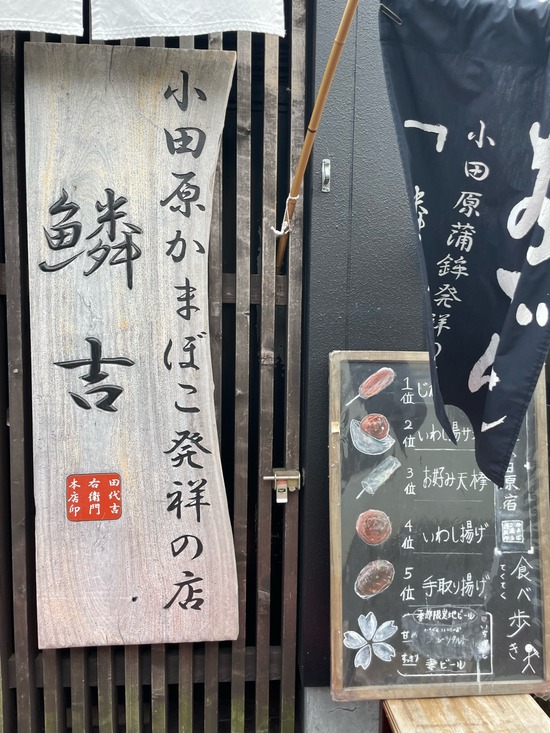 小田原かまぼこ発祥の店
鱗吉
田代吉
右衛門
本店印
小田原蒲鉾発祥の
1位 じ
2位 いわし揚サ
3位 お好み天棒
4位 いわし揚げ
5位 手取り揚げ
田原宿
食べ歩き
てくてく
季節限定地ビール
麦ビール